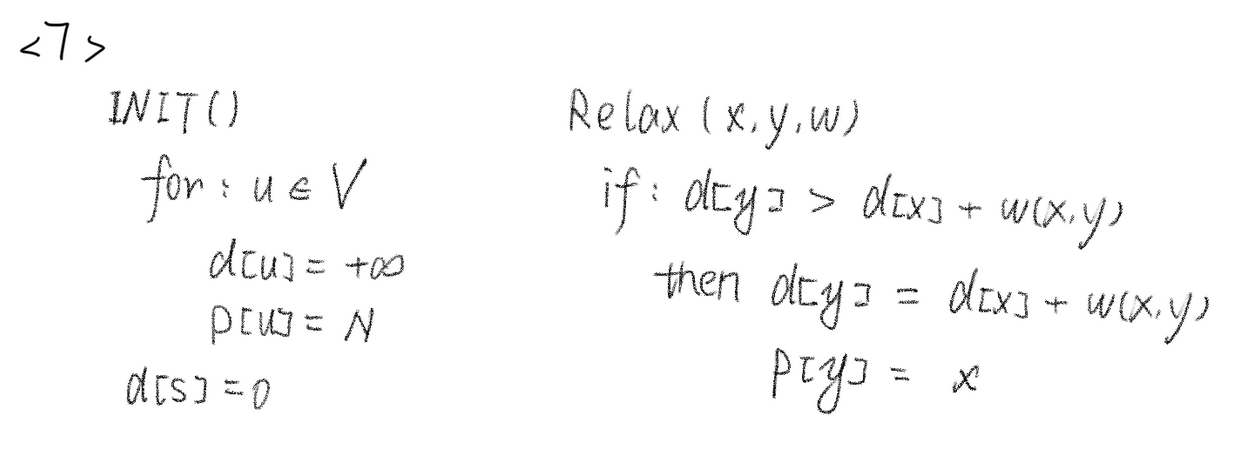 <7>
INIT()
for: u ∈ V
d[u] = +∞
p[u] = N
d[s] = 0
Relax (x, y, w)
if: d[y] > d[x] + w(x, y)
then d[y] = d[x] + w(x, y)
p[y] = x